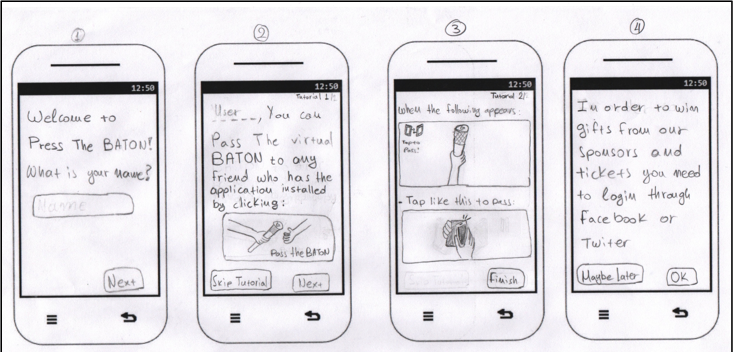 1
12:50
Welcome to
Press The BATON!
What is your name?
Name
Next
2
12:50
Tutorial 1/2
User, You can
Pass The virtual
BATON to any
friend who has the
application installed
by clicking:
Pass the BATON
Skip Tutorial
Next
3
12:50
Tutorial 2/2
When the following appears:
0:0
Tap to
Pass!
- Tap like this to pass:
Finish
4
12:50
In order to win
gifts from our
sponsors and
tickets you need
to login through
facebook or
Twiter
Maybe Later
OK